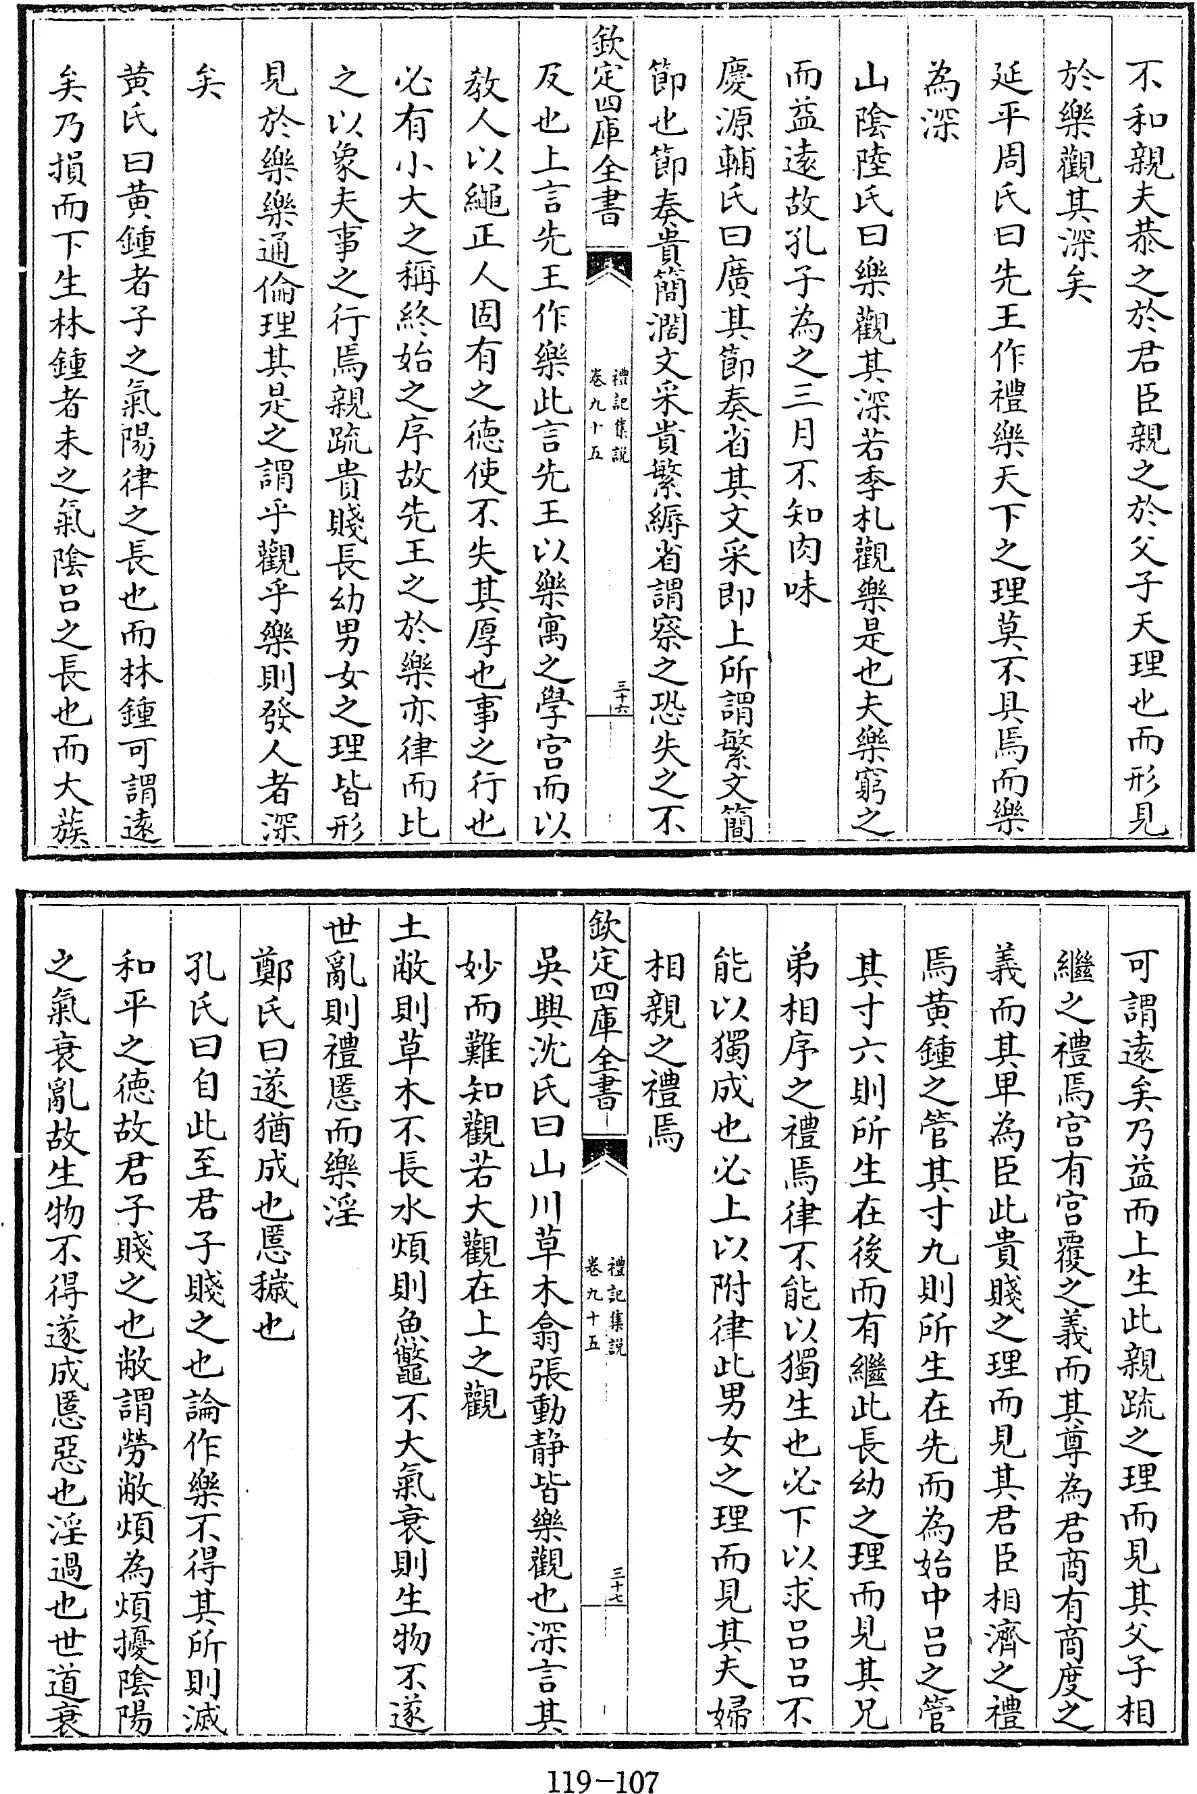 不和親夫恭之於君臣親之於父子天理也而形見
於樂觀其深矣
延平周氏曰先王作禮樂天下之理莫不具焉而樂
為深
山陰陸氏曰樂觀其深若季札觀樂是也夫樂窮之
而益遠故孔子為之三月不知肉味
慶源輔氏曰廣其節奏省其文采即上所謂繁文簡
節也節奏貴簡濶文采貴繁縟省謂察之恐失之不
欽定四庫全書
禮記集說
卷九十五
三十六
及也上言先王作樂此言先王以樂寓之學宫而以
教人以繩正人固有之德使不失其厚也事之行也
必有小大之稱終始之序故先王之於樂亦律而比
之以象夫事之行焉親疏貴賤長幼男女之理皆形
見於樂樂通倫理其是之謂乎觀乎樂則發人者深
矣
黄氏曰黄鍾者子之氣陽律之長也而林鍾可謂遠
矣乃損而下生林鍾者未之氣陰吕之長也而大蔟
可謂遠矣乃益而上生此親疏之理而見其父子相
繼之禮焉宫有宫覆之義而其尊為君商有商度之
義而其卑為臣此貴賤之理而見其君臣相濟之禮
焉黄鍾之管其寸九則所生在先而為始中吕之管
其寸六則所生在後而有繼此長幼之理而見其兄
弟相序之禮焉律不能以獨生也必下以求吕吕不
能以獨成也必上以附律此男女之理而見其夫婦
相親之禮焉
欽定四庫全書
禮記集說
卷九十五
三十七
吳興沈氏曰山川草木翕張動静皆樂觀也深言其
妙而難知觀若大觀在上之觀
土敝則草木不長水煩則魚鼈不大氣衰則生物不遂
世亂則禮慝而樂淫
鄭氏曰遂猶成也慝穢也
孔氏曰自此至君子賤之也論作樂不得其所則滅
和平之德故君子賤之也敝謂勞敝煩為煩擾陰陽
之氣衰亂故生物不得遂成慝惡也淫過也世道衰
119-107